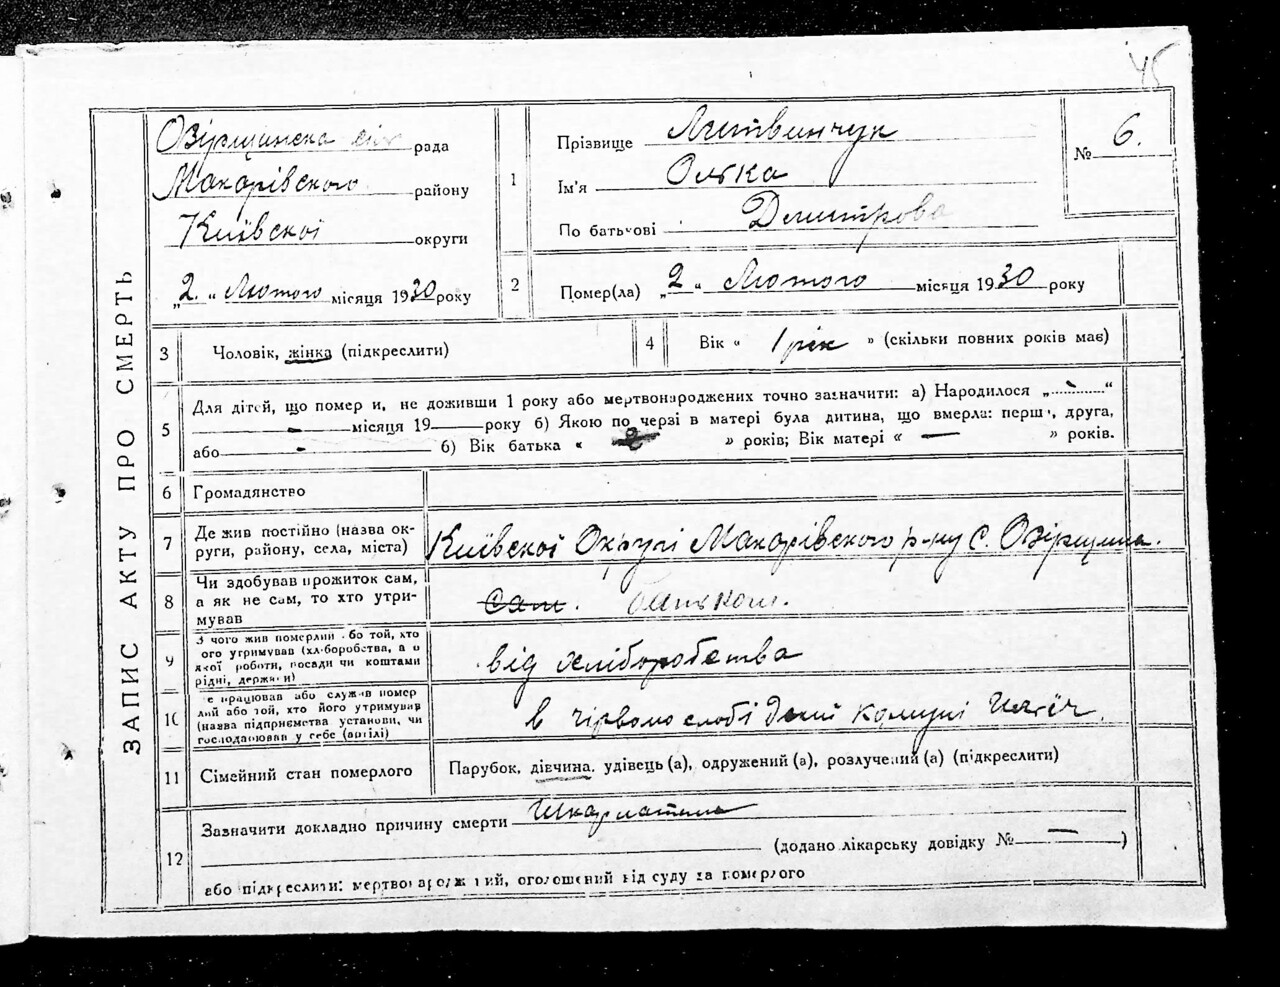 45
ЗАПИС АКТУ ПРО СМЕРТЬ
Овірщинска сіл рада
Макарівского району
Київскої округи
„2.“ Лютого місяця 1930 року
1
Прізвище Литвинчук
Ім'я Олька
По батькові Дмитрова
№ 6.
2
Помер(ла) „2“ Лютого місяця 1930 року
3 Чоловік, жінка (підкреслити)
4 Вік „ 1 рік » (скільки повних років має)
5 Для дітей, що помер и, не доживши 1 року або мертвонароджених точно зазначити: а) Народилося „ “
місяця 19 року б) Якою по черзі в матері була дитина, що вмерла: перш , друга,
або б) Вік батька « » років; Вік матері « — » років.
6 Громадянство
7 Де жив постійно (назва ок-
руги, району, села, міста)
Київскої Округі Макарівского р-ну с. Овірщина.
8 Чи здобував прожиток сам,
а як не сам, то хто утри-
мував
Сам. батьком.
9 З чого жив померлий або той, хто
його утримував (хліборобства, а о
якої роботи, посади чи коштами
рідні, держ и)
від хліборобства
10 е працював або служив помер
лий або той, хто його утримував
(назва підприємства установи, чи
господарював у себе (артілі)
в чірвоно слобідскій комуні Ілліч.
11 Сімейний стан померлого
Парубок, дівчина, удівець (а), одружений (а), розлучений (а) (підкреслити)
12 Зазначити докладно причину смерти Шкарлатина
(додано лікарську довідку № — )
або підкреслити: мертвонароджений, оголошений від суду за померлого